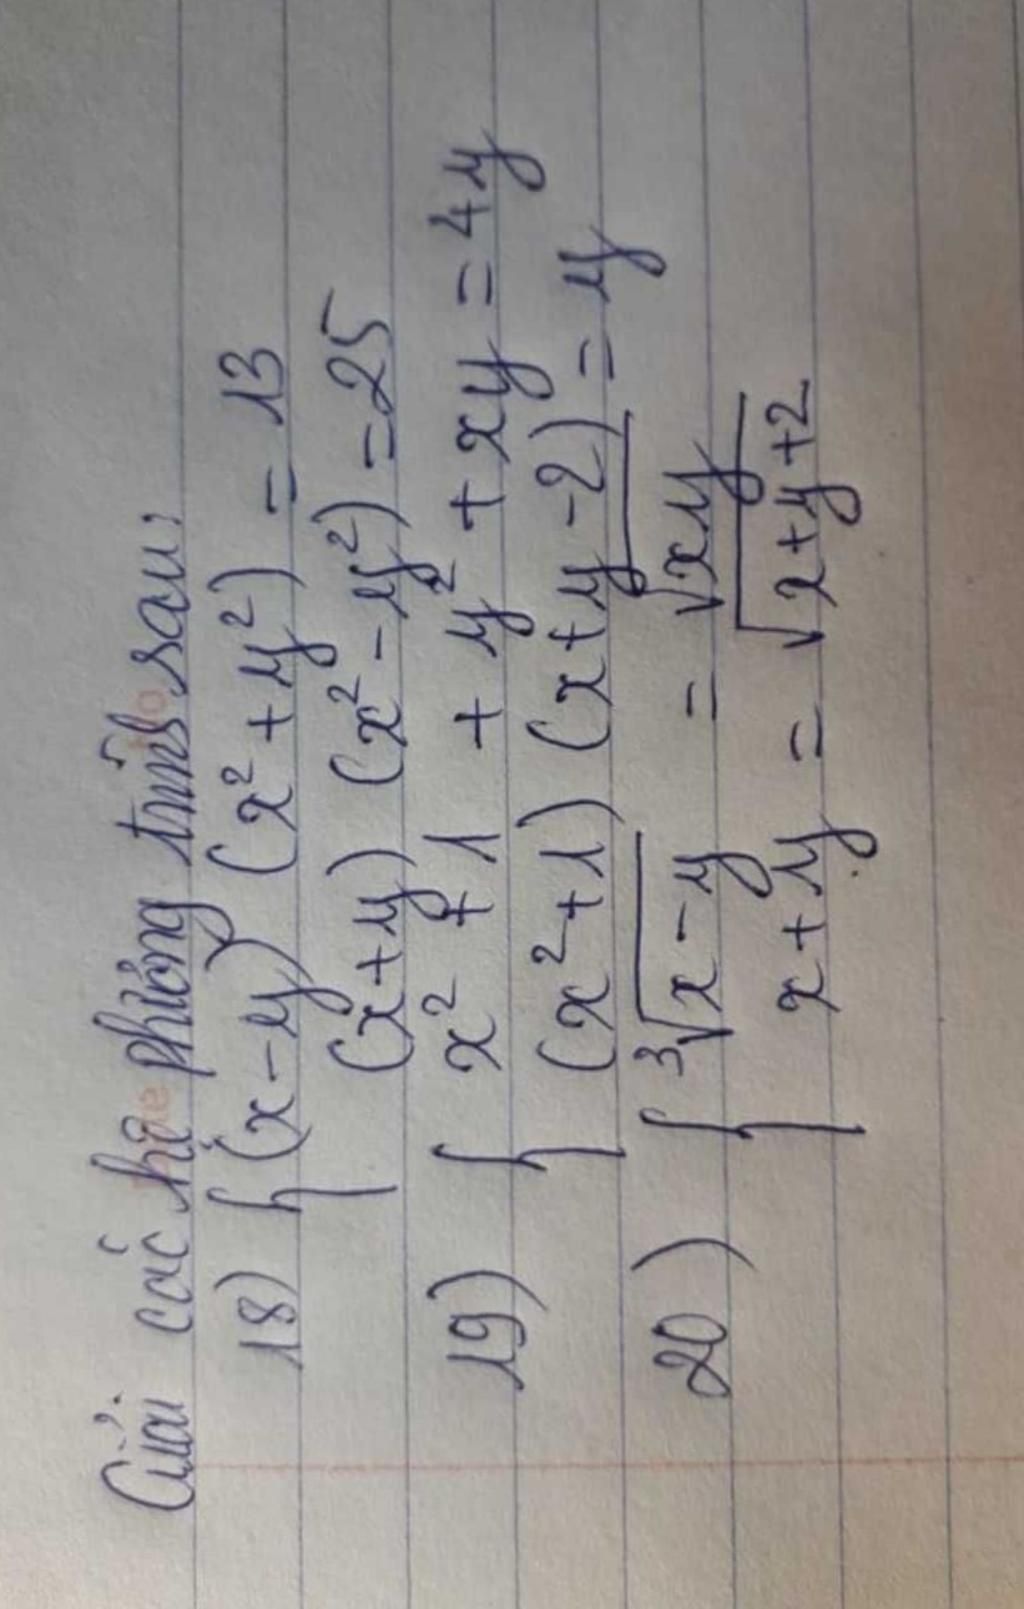 Giải các hệ phương trình sau:
18) { (x-y) (x²+y²) = 13
(x+y) (x²-y²) = 25
19) { x² + 1 + y² + xy = 4y
(x²+1) (x+y-2) = y
20) { ∛(x-y) = √(xy)
x+y = √(x+y+2)